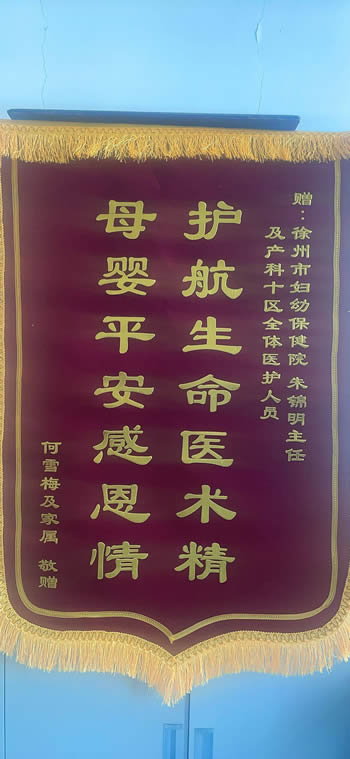 赠：徐州市妇幼保健院 朱锦明主任
及产科十区全体医护人员
护航生命医术精
母婴平安感恩情
何雪梅及家属 敬赠